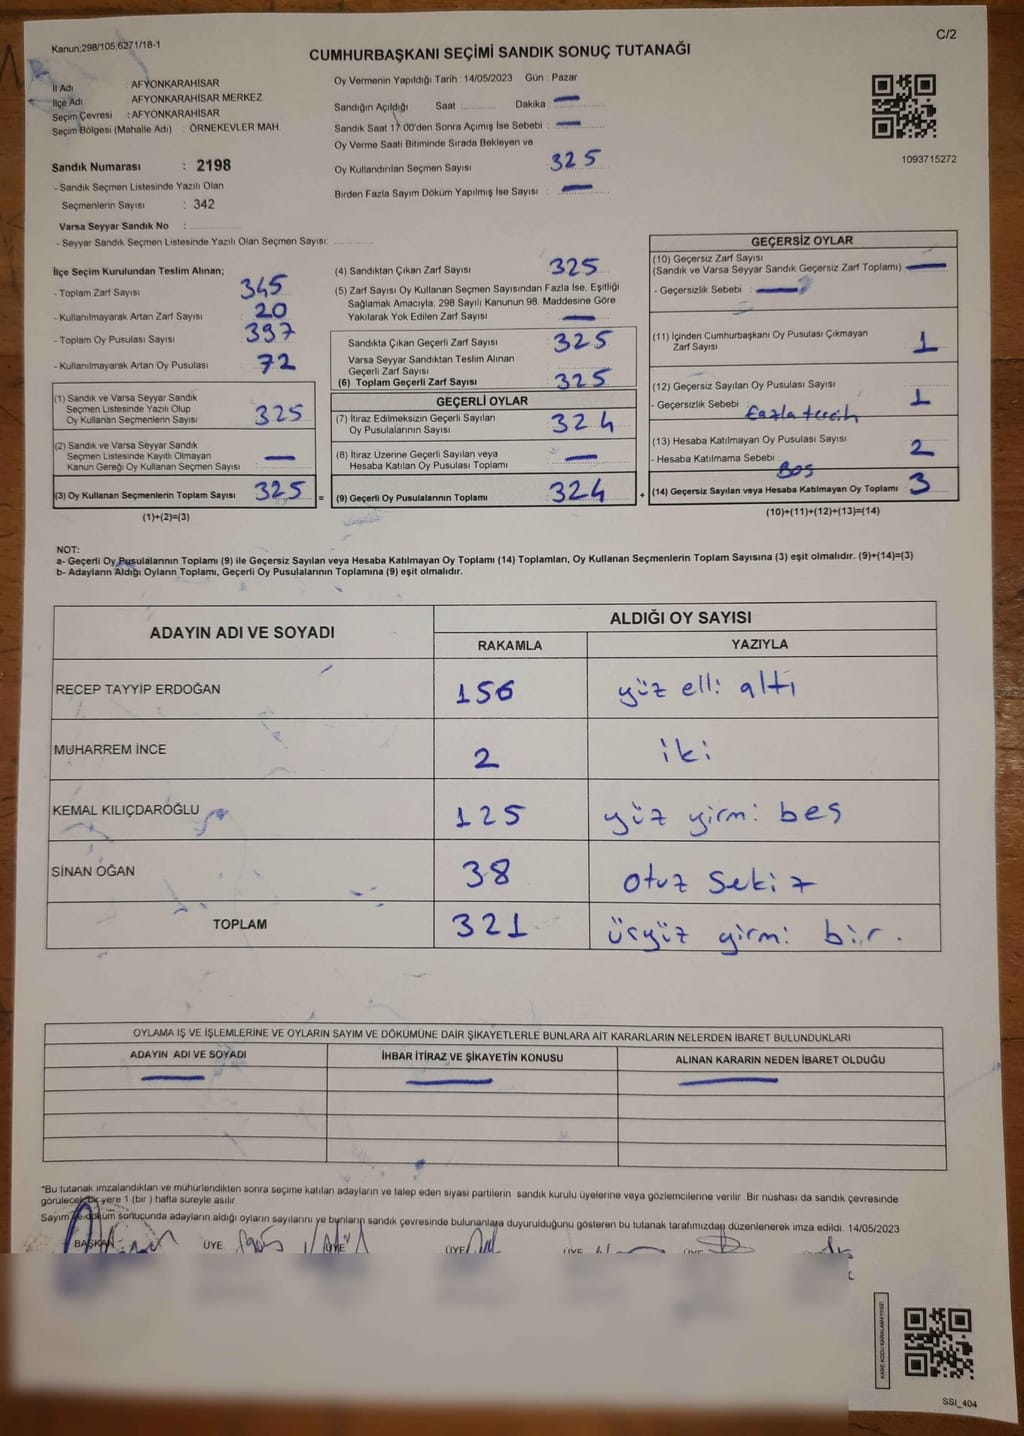 Kanun;298/105,6271/18-1
C/2
CUMHURBAŞKANI SEÇİMİ SANDIK SONUÇ TUTANAĞI
İl Adı : AFYONKARAHİSAR
İlçe Adı : AFYONKARAHİSAR MERKEZ
Seçim Çevresi : AFYONKARAHİSAR
Seçim Bölgesi (Mahalle Adı) : ÖRNEKEVLER MAH.
Sandık Numarası : 2198
- Sandık Seçmen Listesinde Yazılı Olan
Seçmenlerin Sayısı : 342
Varsa Seyyar Sandık No :
- Seyyar Sandık Seçmen Listesinde Yazılı Olan Seçmen Sayısı:
Oy Vermenin Yapıldığı Tarih : 14/05/2023 Gün : Pazar
Sandığın Açıldığı Saat Dakika
Sandık Saat 17:00'den Sonra Açımış İse Sebebi :
Oy Verme Saati Bitiminde Sırada Bekleyen ve
Oy Kullandırılan Seçmen Sayısı : 325
Birden Fazla Sayım Döküm Yapılmış İse Sayısı :
1093715272
İlçe Seçim Kurulundan Teslim Alınan;
- Toplam Zarf Sayısı : 345
- Kullanılmayarak Artan Zarf Sayısı : 20
- Toplam Oy Pusulası Sayısı : 397
- Kullanılmayarak Artan Oy Pusulası : 72
(1) Sandık ve Varsa Seyyar Sandık
Seçmen Listesinde Yazılı Olup
Oy Kullanan Seçmenlerin Sayısı : 325
(2) Sandık ve Varsa Seyyar Sandık
Seçmen Listesinde Kayıtlı Olmayan
Kanun Gereği Oy Kullanan Seçmen Sayısı :
(3) Oy Kullanan Seçmenlerin Toplam Sayısı : 325 =
(1)+(2)=(3)
(4) Sandıktan Çıkan Zarf Sayısı : 325
(5) Zarf Sayısı Oy Kullanan Seçmen Sayısından Fazla İse, Eşitliği
Sağlamak Amacıyla, 298 Sayılı Kanunun 98. Maddesine Göre
Yakılarak Yok Edilen Zarf Sayısı :
Sandıkta Çıkan Geçerli Zarf Sayısı : 325
Varsa Seyyar Sandıktan Teslim Alınan
Geçerli Zarf Sayısı :
(6) Toplam Geçerli Zarf Sayısı : 325
GEÇERLİ OYLAR
(7) İtiraz Edilmeksizin Geçerli Sayılan
Oy Pusulalarının Sayısı : 324
(8) İtiraz Üzerine Geçerli Sayılan veya
Hesaba Katılan Oy Pusulası Toplamı :
(9) Geçerli Oy Pusulalarının Toplamı : 324 +
GEÇERSİZ OYLAR
(10) Geçersiz Zarf Sayısı
(Sandık ve Varsa Seyyar Sandık Geçersiz Zarf Toplamı) :
- Geçersizlik Sebebi :
(11) İçinden Cumhurbaşkanı Oy Pusulası Çıkmayan
Zarf Sayısı : 1
(12) Geçersiz Sayılan Oy Pusulası Sayısı : 1
- Geçersizlik Sebebi : fazla tercih
(13) Hesaba Katılmayan Oy Pusulası Sayısı : 2
- Hesaba Katılmama Sebebi : Boş
(14) Geçersiz Sayılan veya Hesaba Katılmayan Oy Toplamı : 3
(10)+(11)+(12)+(13)=(14)
NOT:
a- Geçerli Oy Pusulalarının Toplamı (9) ile Geçersiz Sayılan veya Hesaba Katılmayan Oy Toplamı (14) Toplamları, Oy Kullanan Seçmenlerin Toplam Sayısına (3) eşit olmalıdır. (9)+(14)=(3)
b- Adayların Aldığı Oyların Toplamı, Geçerli Oy Pusulalarının Toplamına (9) eşit olmalıdır.
ADAYIN ADI VE SOYADI
ALDIĞI OY SAYISI
RAKAMLA YAZIYLA
RECEP TAYYİP ERDOĞAN 156 yüz elli altı
MUHARREM İNCE 2 iki
KEMAL KILIÇDAROĞLU 125 yüz yirmi beş
SİNAN OĞAN 38 otuz sekiz
TOPLAM 321 üçyüz yirmi bir.
OYLAMA İŞ VE İŞLEMLERİNE VE OYLARIN SAYIM VE DÖKÜMÜNE DAİR ŞİKAYETLERLE BUNLARA AİT KARARLARIN NELERDEN İBARET BULUNDUKLARI
ADAYIN ADI VE SOYADI İHBAR İTİRAZ VE ŞİKAYETİN KONUSU ALINAN KARARIN NEDEN İBARET OLDUĞU
*Bu tutanak imzalandıktan ve mühürlendikten sonra seçime katılan adayların ve talep eden siyasi partilerin sandık kurulu üyelerine veya gözlemcilerine verilir. Bir nüshası da sandık çevresinde
görülecek bir yere 1 (bir ) hafta süreyle asılır.
Sayım ve döküm sonuçunda adayların aldığı oyların sayılarını ve bunların sandık çevresinde bulunanlara duyurulduğunu gösteren bu tutanak tarafımızdan düzenlenerek imza edildi. 14/05/2023
BAŞKAN ÜYE ÜYE ÜYE ÜYE ÜYE
SSI_404